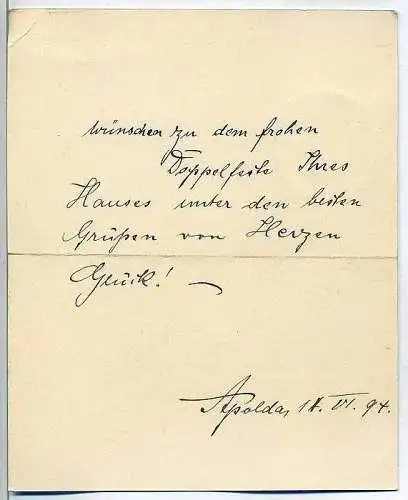 wünschen zu dem frohen
Doppelfeste Ihres
Hauses unter den besten
Grüßen von Herzen
Glück! —
Apolda, 18. VI. 94.